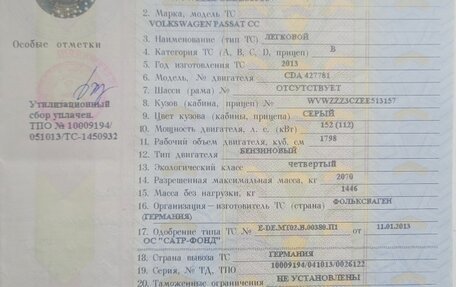 2. Марка, модель ТС
VOLKSWAGEN PASSAT CC
3. Наименование (тип ТС) ЛЕГКОВОЙ
4. Категория ТС (A, B, C, D, прицеп) B
5. Год изготовления ТС 2013
6. Модель, № двигателя CDA 427781
7. Шасси (рама) № ОТСУТСТВУЕТ
8. Кузов (кабина, прицеп) № WVWZZZ3CZEE513157
9. Цвет кузова (кабины, прицепа) СЕРЫЙ
10. Мощность двигателя, л. с. (кВт) 152 (112)
11. Рабочий объем двигателя, куб. см 1798
12. Тип двигателя БЕНЗИНОВЫЙ
13. Экологический класс четвертый
14. Разрешенная максимальная масса, кг 2070
15. Масса без нагрузки, кг 1446
16. Организация—изготовитель ТС (страна) ФОЛЬКСВАГЕН
(ГЕРМАНИЯ)
17. Одобрение типа ТС № E-DE.MT02.B.00380.П1 от 11.01.2013
ОС "САТР-ФОНД"
18. Страна вывоза ТС ГЕРМАНИЯ
19. Серия, № ТД, ТПО 10009194/041013/0026122
20. Таможенные ограничения НЕ УСТАНОВЛЕНЫ
Особые отметки
Утилизационный
сбор уплачен.
ТПО № 10009194/
051013/ТС-1450932